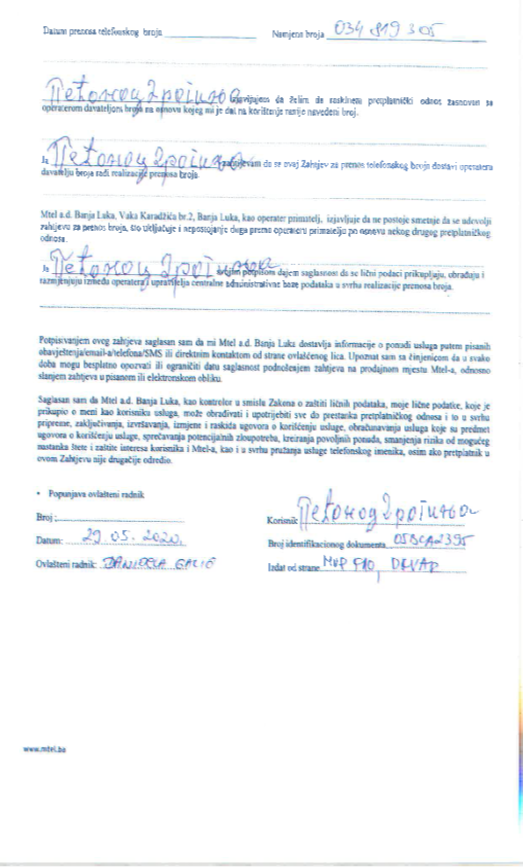 Datum prenosa telefonskog broja Namjena broja 034 819 305
izjavljujem da želim da raskinem pretplatnički odnos zasnovan sa
operatorom davateljem broja na osnovu kojeg mi je dat na korištenje ranije navedeni broj.
Ja zahtijevam da se ovaj Zahtjev za prenos telefonskog broja dostavi operatera
davatelju broja radi realizacije prenosa broja.
Mtel a.d. Banja Luka, Vuka Karadžića br.2, Banja Luka, kao operater primatelj, izjavljuje da ne postoje smetnje da se udovolji
zahtjevu za prenos broja, što uključuje i nepostojanje duga prema operateru primatelju po osnovu nekog drugog pretplatničkog
odnosa.
Ja svojim potpisom dajem saglasnost da se lični podaci prikupljaju, obrađuju i
razmjenjuju između operatera i upravitelja centralne administrativne baze podataka u svrhu realizacije prenosa broja.
Potpisivanjem ovog zahtjeva saglasan sam da mi Mtel a.d. Banja Luka dostavlja informacije o ponudi usluga putem pisanih
obavještenja/email-a/telefona/SMS ili direktnim kontaktom od strane ovlašćenog lica. Upoznat sam sa činjenicom da u svako
doba mogu besplatno opozvati ili ograničiti datu saglasnost podnošenjem zahtjeva na prodajnom mjestu Mtel-a, odnosno
slanjem zahtjeva u pisanom ili elektronskom obliku.
Saglasan sam da Mtel a.d. Banja Luka, kao kontrolor u smislu Zakona o zaštiti ličnih podataka, moje lične podatke, koje je
prikupio o meni kao korisniku usluga, može obrađivati i upotrijebiti sve do prestanka pretplatničkog odnosa i to u svrhu
pripreme, zaključivanja, izvršavanja, izmjene i raskida ugovora o korišćenju usluge, obračunavanja usluga koje su predmet
ugovora o korišćenju usluge, sprečavanja potencijalnih zloupotreba, kreiranja povoljnih ponuda, smanjenja rizika od mogućeg
nastanka štete i zaštite interesa korisnika i Mtel-a, kao i u svrhu pružanja usluge telefonskog imenika, osim ako pretplatnik u
ovom Zahtjevu nije drugačije odredio.
• Popunjava ovlašteni radnik
Broj: Korisnik:
Datum: 29.05.2020. Broj identifikacionog dokumenta
Ovlašteni radnik: DANIJELA GALIĆ Izdat od strane
www.mtel.ba